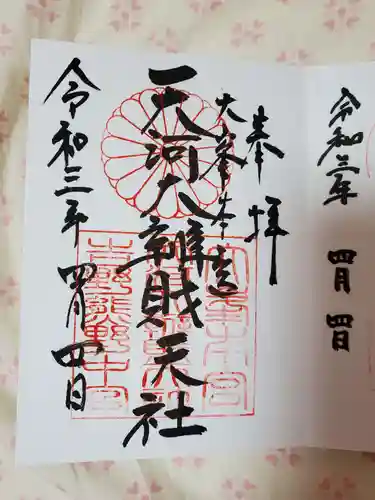 奉拝
大峯本宮
天河大辨財天社
令和三年 四月 四日
令和三年 四月 四日